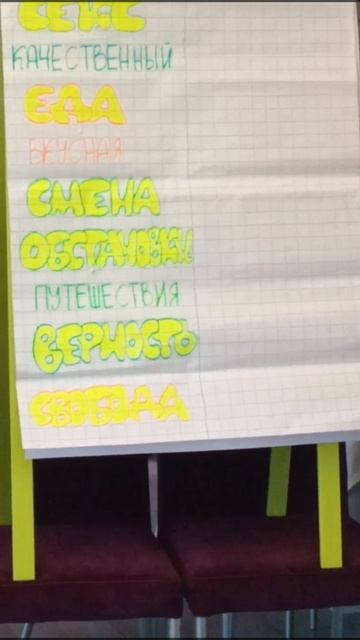 СЕКС
КАЧЕСТВЕННЫЙ
ЕДА
ВКУСНАЯ
СМЕНА
ОБСТАНОВКИ
ПУТЕШЕСТВИЯ
ВЕРНОСТЬ
СВОБОДА